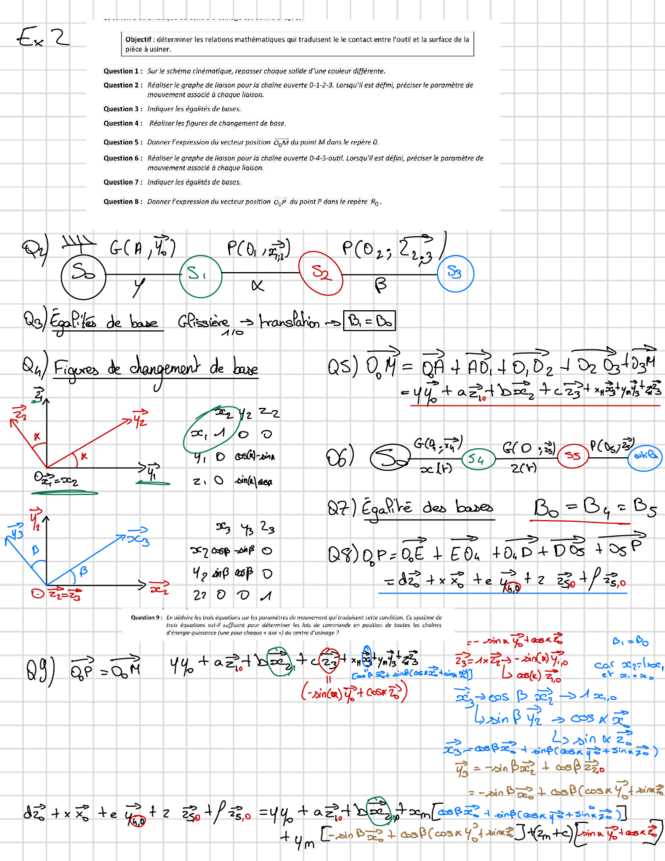 Ex 2
Objectif : déterminer les relations mathématiques qui traduisent le le contact entre l'outil et la surface de la pièce à usiner.
Question 1 : Sur le schéma cinématique, repasser chaque solide d'une couleur différente.
Question 2 : Réaliser le graphe de liaison pour la chaîne ouverte 0-1-2-3. Lorsqu'il est défini, préciser le paramètre de
mouvement associé à chaque liaison.
Question 3 : Indiquer les égalités de bases.
Question 4 : Réaliser les figures de changement de base.
Question 5 : Donner l'expression du vecteur position O₀M du point M dans le repère 0.
Question 6 : Réaliser le graphe de liaison pour la chaîne ouverte 0-4-5-outil. Lorsqu'il est défini, préciser le paramètre de
mouvement associé à chaque liaison.
Question 7 : Indiquer les égalités de bases.
Question 8 : Donner l'expression du vecteur position O₀P du point P dans le repère R₀.
Q2) G(A, y₀) P(O₁, x₁,₂) P(O₂; z₂;₃)
S₀ S₁ S₂ S₃
y α β
Q3) Égalités de base Glissière 1/0 → translation → B₁ = B₀
Q4) Figures de changement de base
z₁ z₂ y₂ α α
O x₁=x₂ y₁
x₂ y₂ z₂
x₁ 1 0 0
y₁ 0 cos(α) -sinα
z₁ 0 sin(α) cosα
Q5) O₀M = O₀A + AO₁ + O₁O₂ + O₂O₃ + O₃M
= y y₀ + a z₁₀ + b x₂ + c z₃ + xₘx₃ + yₘy₃ + z₃
Q6) S₀ G(O₄, x₄) x(t) S₄ G(O, z₅) z(t) S₅ P(O₅, z₅)
Q7) Égalité des bases B₀ = B₄ = B₅
y₂ y₃ x₃ β β
O z₂=z₃ x₂
x₃ y₃ z₃
x₂ cosβ -sinβ 0
y₂ sinβ cosβ 0
z₂ 0 0 1
Q8) O₀P = O₀E + EO₄ + O₄D + DO₅ + O₅P
= d z₀ + x x₀ + e y₄,₀ + z z₅₀ + ρ z₅,₀
Question 9 : En déduire les trois équations sur les paramètres de mouvement qui traduisent cette condition. Ce système de
trois équations est-il suffisant pour déterminer les lois de commande en position de toutes les chaînes
d'énergie-puissance (une pour chaque « axe ») du centre d'usinage ?
Q9) O₀P = O₀M
y y₀ + a z₁₀ + b x₂ + c z₃ + xₘx₃ + yₘy₃ + z₃
(-sin(α) y₀ + cosα z₀)
= - sinα y₀ + cosα z₀
z₃ = 1×z₂ → -sin(α) y₁,₀
↳ cos(α) z₁,₀
B₁ = B₀
x₃ → cos β x₂ → 1 x₁,₀
↳ sin β y₂ → cos α
↳ sin α z₀
x₃ = cosβ x₀ + sinβ(cosα y₀ + sinα z₀)
y₃ = -sinβ x₂ + cosβ
= -sinβ x₀ + cosβ(cosα y₀ + sinα z₀)
d z₀ + x x₀ + e y₄,₀ + z z₅₀ + ρ z₅,₀ = y y₀ + a z₁₀ + b x₂ + xₘ[cosβ x₀ + sinβ(cosα y₀ + sinα z₀)]
+ yₘ[-sinβ x₀ + cosβ(cosα y₀ + sinα z₀)] + (zₘ + c)[sinα y₀ + cosα z₀]